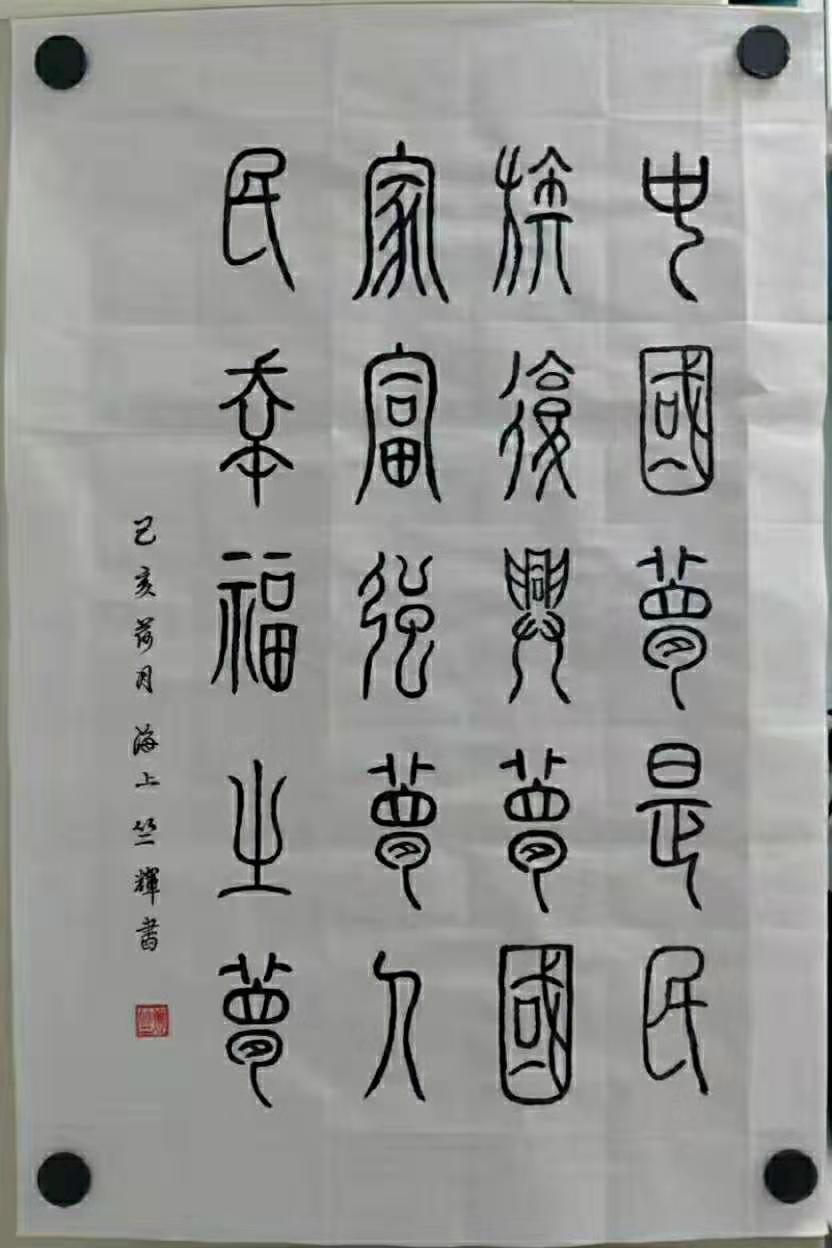 中國夢是民
族復興夢國
家富強夢人
民幸福之夢
己亥荷月 海上竺輝書